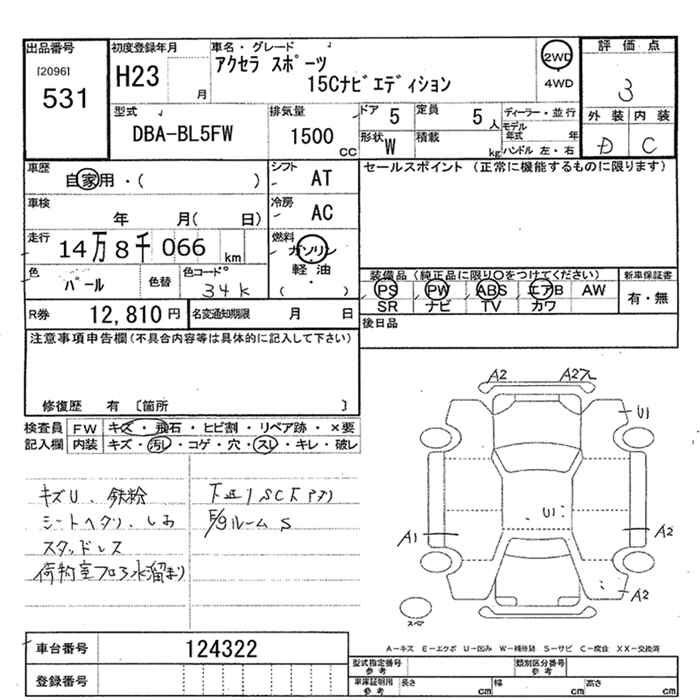 出品番号
[2096]
531
初度登録年月
H23
月
車名・グレード
アクセラ スポーツ
15Cナビエディション
2WD
4WD
評価点
3
外装 内装
D C
型式
DBA-BL5FW
排気量
1500 CC
ドア 5
定員 5 人
形状 W
積載 kg
ディーラー・並行
モデル年式 年
ハンドル 左・右
車歴
自家用・( )
シフト AT
車検
年 月( 日)
冷房 AC
走行
14万8千066 km
燃料
ガソリン
軽油
( ・ )
色
パール
色替
色コード
34K
R券 12,810円
名変通知期限 月 日
セールスポイント (正常に機能するものに限ります)
装備品 (純正品に限り○をつけてください)
PS PW ABS エアB AW
SR ナビ TV カワ
新車保証書
有・無
後日品
注意事項申告欄 (不具合内容等は具体的に記入して下さい)
修復歴 有 〔箇所 〕
検査員記入欄
FW キズ・飛石・ヒビ割・リペア跡・×要
内装 キズ・汚レ・コゲ・穴・スレ・キレ・破レ
キズU、鉄粉
シートヘタリ、しお
スタッドレス
荷物室フロアシ水溜まり
ルーム S
A2 A2
U1
U1
A1 A2
A2
スペア
A-キズ E-エクボ U-凹み W-補修跡 S-サビ C-腐食 XX-交換済
車台番号 124322
登録番号
型式指定番号 参考
類別区分番号 参考
車庫証明用 参考
長さ cm 幅 cm 高さ cm